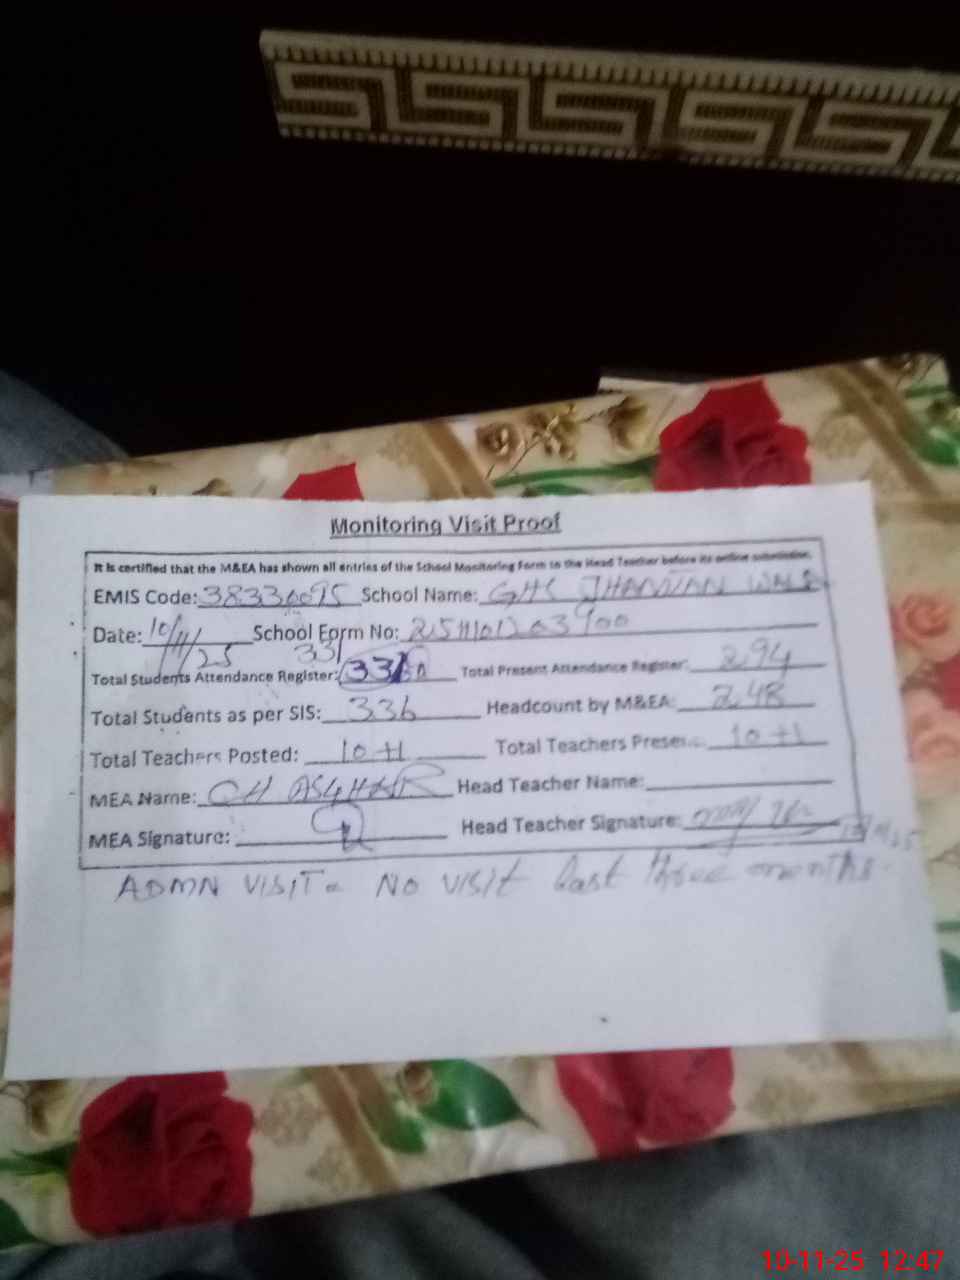 Monitoring Visit Proof
It is certified that the M&EA has shown all entries of the School Monitoring Form to the Head Teacher before its online submission.
EMIS Code: 38330095 School Name: GHS JHANDAN WALA
Date: 10/11/25 School Form No:
331
Total Students Attendance Register: 331 Total Present Attendance Register: 294
Total Students as per SIS: 336 Headcount by M&EA: 248
Total Teachers Posted: 10+1 Total Teachers Present: 10+1
MEA Name: CH ASGHAR Head Teacher Name:
MEA Signature: Head Teacher Signature:
ADMN VISIT = NO VISIT last three months.
10-11-25 12:47